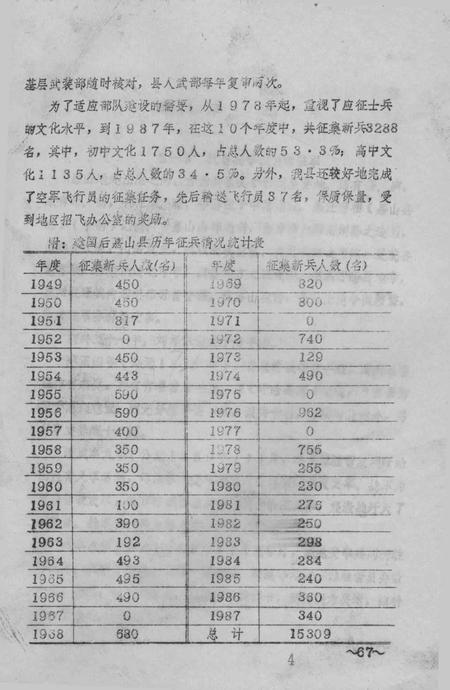 基层武装部随时核对，县人武部每年复审两次。
为了适应部队建设的需要，从1978年起，重视了应征士兵
的文化水平，到1987年，在这10个年度中，共征集新兵3288
名，其中，初中文化1750人，占总人数的53·3%；高中文
化1135人，占总人数的34·5%。另外，我县还较好地完成
了空军飞行员的征集任务，先后输送飞行员37名，保质保量，受
到地区招飞办公室的奖励。
附：建国后嘉山县历年征兵情况统计表
年度 征集新兵人数(名) 年度 征集新兵人数(名)
1949 450 1969 320
1950 450 1970 300
1951 317 1971 0
1952 0 1972 740
1953 450 1973 129
1954 443 1974 490
1955 590 1975 0
1956 590 1976 962
1957 400 1977 0
1958 350 1978 755
1959 350 1979 255
1960 350 1980 230
1961 100 1981 276
1962 390 1982 250
1963 192 1983 298
1964 493 1984 284
1965 495 1985 240
1966 490 1986 360
1967 0 1987 340
1968 680 总计 15309
～67～
4